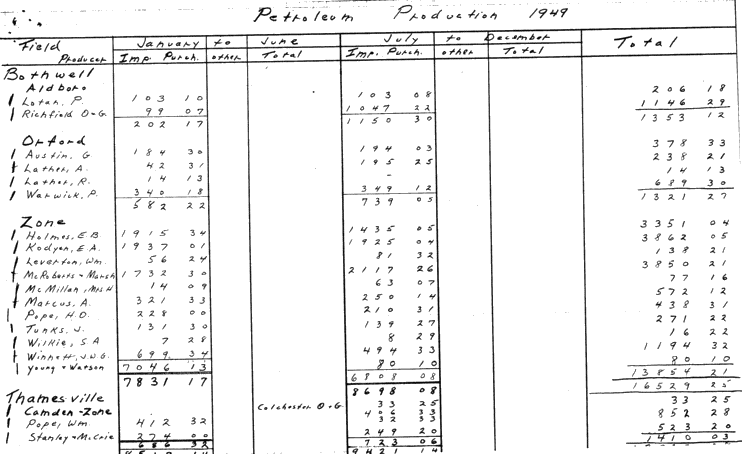 Petroleum Production 1949
Field January to June July to December Total
Producer Imp. Purch. other Total Imp. Purch. other Total
Bothwell
Aldboro
Lotan, P. 103 10 103 08 206 18
Richfield O-G 99 07 1047 22 1146 29
202 17 1150 30 1353 12
Orford
Austin, G 184 30 194 03 378 33
Lather, A. 42 31 195 25 238 21
Lather, R. 14 13 - 14 13
Warwick, P. 340 18 349 12 689 30
582 22 739 05 1321 27
Zone
Holmes, E.B. 1915 34 1435 05 3351 04
Kodyen, E.A. 1937 01 1925 04 3862 05
Leverton, Wm. 56 24 81 32 138 21
McRoberts - Marsh 1732 30 2117 26 3850 21
McMillan, Mrs H 14 09 63 07 77 16
Marcus, A. 321 33 250 14 572 12
Pope, H.D. 228 00 210 31 438 31
Tunks, J. 131 30 139 27 271 22
Wilkie, S A 7 28 8 29 16 22
Winnett, J.W.G. 699 34 494 33 1194 32
Young + Watson 80 10 80 10
7046 13 6808 08 13854 21
7831 17 8698 08 16529 25
Thamesville
Camden-Zone Colchester O-G 33 25 33 25
Pope, Wm. 412 32 852 28
Stanley + McCrie 274 00 249 20 523 20
686 32 723 06 1410 03
9421 14